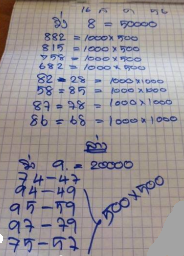 16 ก ค 56
วิ่ง 8 = 50000
882 = 1000 x 500
815 = 1000 x 500
758 = 1000 x 500
682 = 1000 x 500
82 = 28 = 1000 x 1000
58 = 85 = 1000 x 1000
87 = 78 = 1000 x 1000
86 = 68 = 1000 x 1000
ล่าง
วิ่ง 9 = 20000
74 - 47
94 - 49
95 - 59
97 - 79
75 - 57
500 x 500